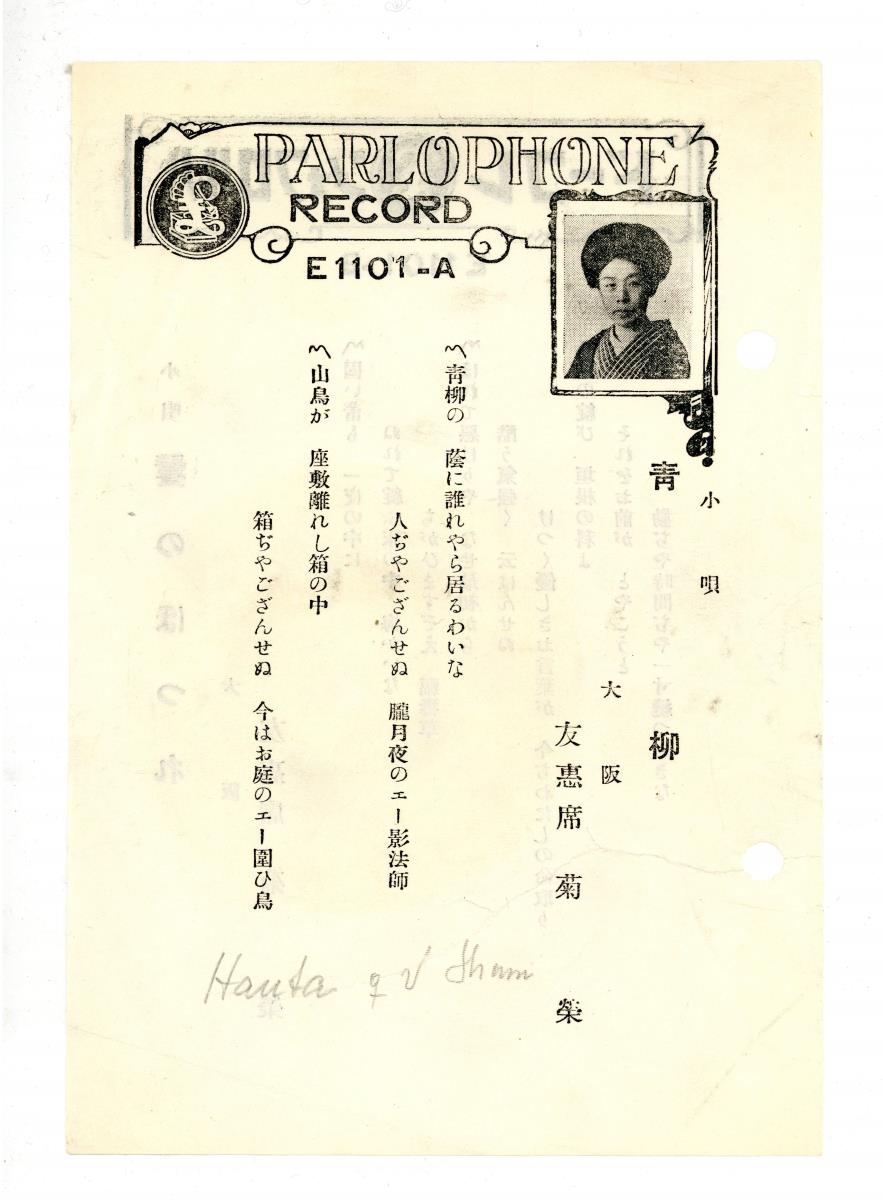 PARLOPHONE
RECORD
E1101-A
小唄
青柳
大阪
友惠席 菊榮
〽青柳の 蔭に誰れやら居るわいな
人ぢやござんせぬ 朧月夜のエー影法師
〽山鳥が 座敷離れし箱の中
箱ぢやござんせぬ 今はお庭のエー圍ひ鳥